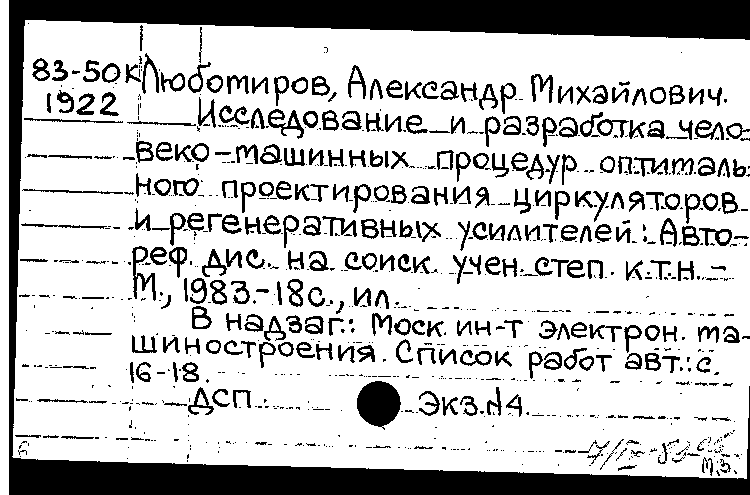 83-50к Любомиров, Александр Михайлович.
1922 Исследование и разработка чело-
веко-машинных процедур оптималь-
ного проектирования циркуляторов
и регенеративных усилителей: Авто-
реф. дис. на соиск. учен. степ. к.т.н. -
М., 1983.-18с., ил.
В надзаг.: Моск. ин-т электрон. ма-
шиностроения. Список работ авт.: с.
16-18.
ДСП. Экз.№4.
М.З.